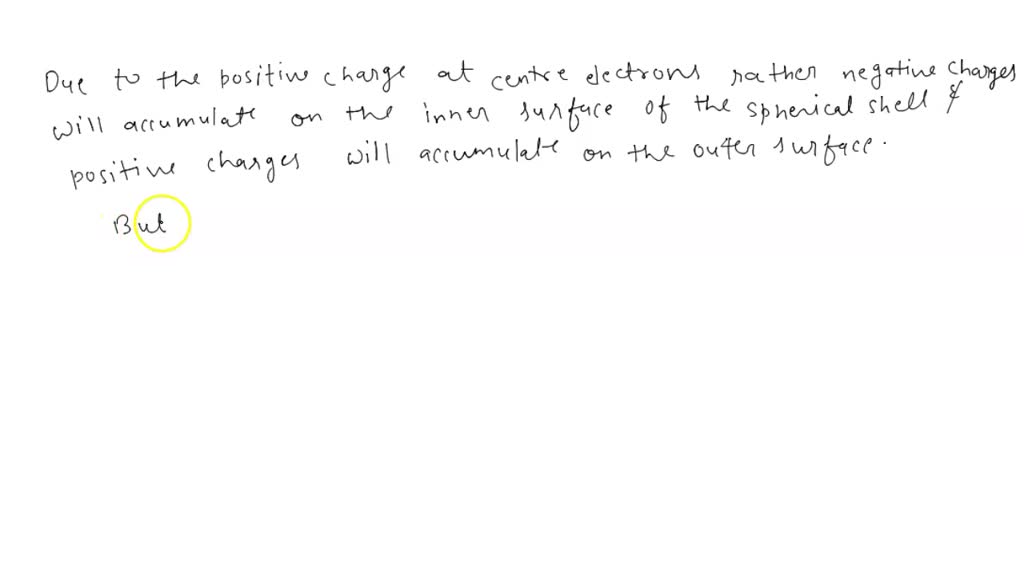 Due to the positive charge at centre electrons rather negative charges
will accumulate on the inner surface of the spherical shell &
positive charges will accumulate on the outer surface.
But